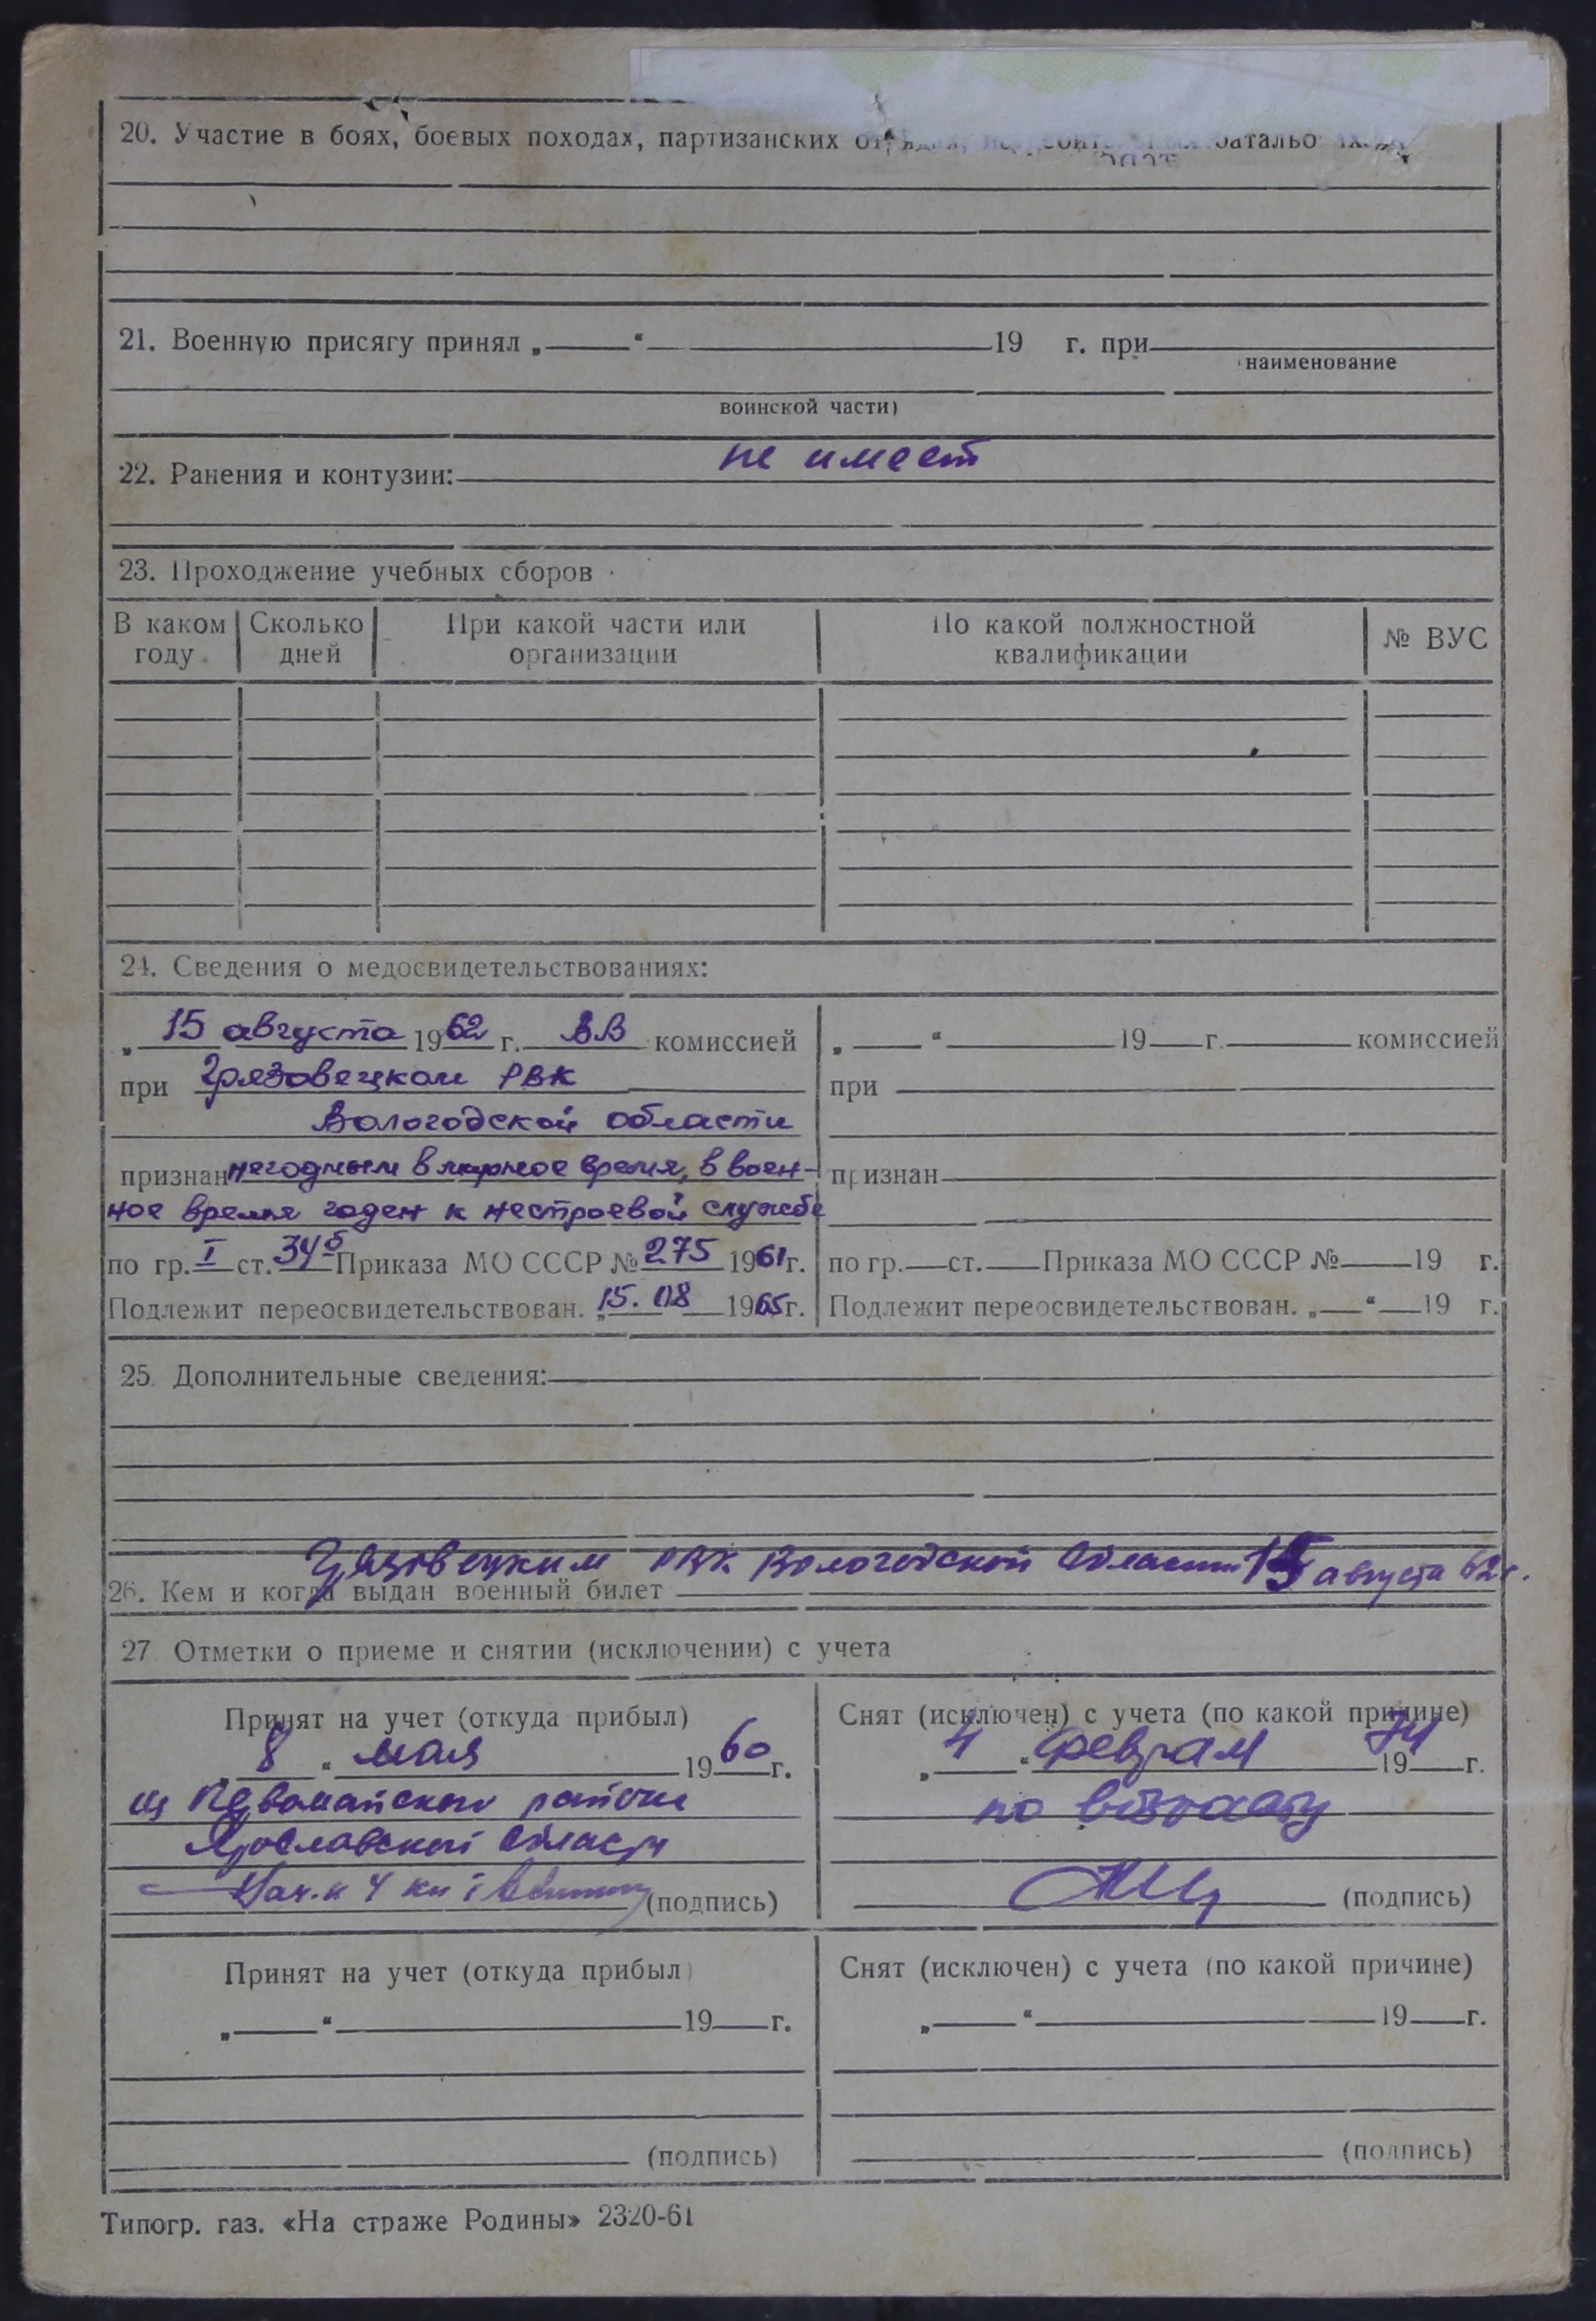 20. Участие в боях, боевых походах, партизанских
21. Военную присягу принял „ “ 19 г. при
наименование
воинской части)
22. Ранения и контузии: не имеет
23. Прохождение учебных сборов
В каком году Сколько дней При какой части или организации По какой должностной квалификации № ВУС
24. Сведения о медосвидетельствованиях:
„ 15 августа 1962 г. ВВ комиссией
при Грязовецком РВК
Вологодской области
признан негодным в мирное время, в воен-
ное время годен к нестроевой службе
по гр. I ст. 34б Приказа МО СССР № 275 1961 г.
Подлежит переосвидетельствован. „15. 08 1965 г.
„ “ 19 г. комиссией
при
признан
по гр. ст. Приказа МО СССР № 19 г.
Подлежит переосвидетельствован. „ “ 19 г.
25. Дополнительные сведения:
Грязовецким РВК Вологодской области 15 августа 62 г.
26. Кем и когда выдан военный билет
27 Отметки о приеме и снятии (исключении) с учета
Принят на учет (откуда прибыл)
„ 8 “ мая 1960 г.
из Первомайского района
Ярославской области
(подпись)
Снят (исключен) с учета (по какой причине)
„ 4 “ феврал 1974 г.
по возрасту
(подпись)
Принят на учет (откуда прибыл)
„ “ 19 г.
(подпись)
Снят (исключен) с учета (по какой причине)
„ “ 19 г.
(подпись)
Типогр. газ. «На страже Родины» 2320-61